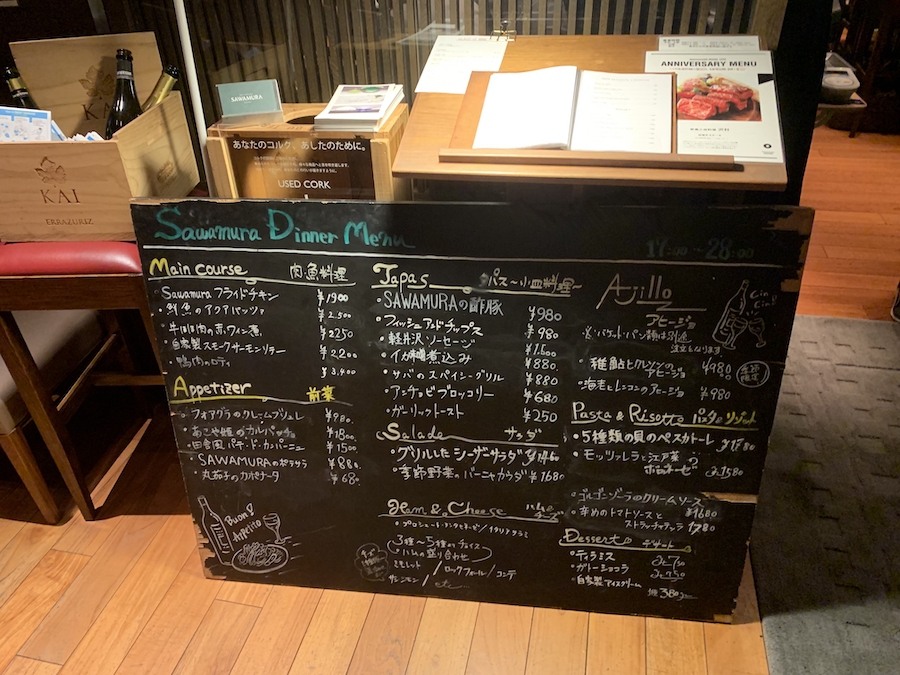 KAI
KAI
ERRAZURIZ
SAWAMURA
あなたのコルク、あしたのために。
USED CORK
ANNIVERSARY MENU
Sawamura Dinner Menu
17:00 → 23:00
Main course 肉・魚料理
・Sawamura フライドチキン ¥1900
・鮮魚のアクアパッツァ ¥2,500
・牛ホホ肉の赤ワイン煮 2250
・自家製スモークサーモンソテー ¥2,200
・鴨肉のロティ ¥3,400
Appetizer 前菜
・フォアグラのクレームブリュレ
・あこや鯛のカルパッチョ ¥1800
・田舎風パテ・ド・カンパーニュ ¥1500
・SAWAMURAのポテサラ ¥880
・丸茄子のカポナータ ¥680
Buon Appetito
Tapas タパス〜小皿料理〜
・SAWAMURAの酢豚 ¥980
・フィッシュアンドチップス ¥980
・軽井沢ソーセージ ¥1,600
・イカ墨煮込み ¥880
・サバのスパイシーグリル ¥880
・アンチョビブロッコリー ¥680
・ガーリックトースト ¥250
Salade サラダ
・グリルしたシーザーサラダ ¥1460
・季節野菜のバーニャカウダ ¥1680
Ham & Cheese ハム&チーズ
3種〜5種のチョイス
・ハムの盛り合わせ
ミモレット / ロックフォール / コンテ
etc
チーズ
Ajillo
アヒージョ
※バケット・パン類は別途
注文となります
Cin Cin!!
・稚鮎とクレソンのアヒージョ ¥980
季節限定
・海老とレンコンのアヒージョ ¥980
Pasta & Risotto パスタ&リゾット
・5種類の貝のペスカトーレ ¥1780
・モッツァレラと江戸菜のボロネーゼ 1580
・ゴルゴンゾーラのクリームソース ¥1680
・辛めのトマトソースとストラッチャテッラ 1780
Dessert デザート
・ティラミス 750
・ガトーショコラ 750
・自家製アイスクリーム 380